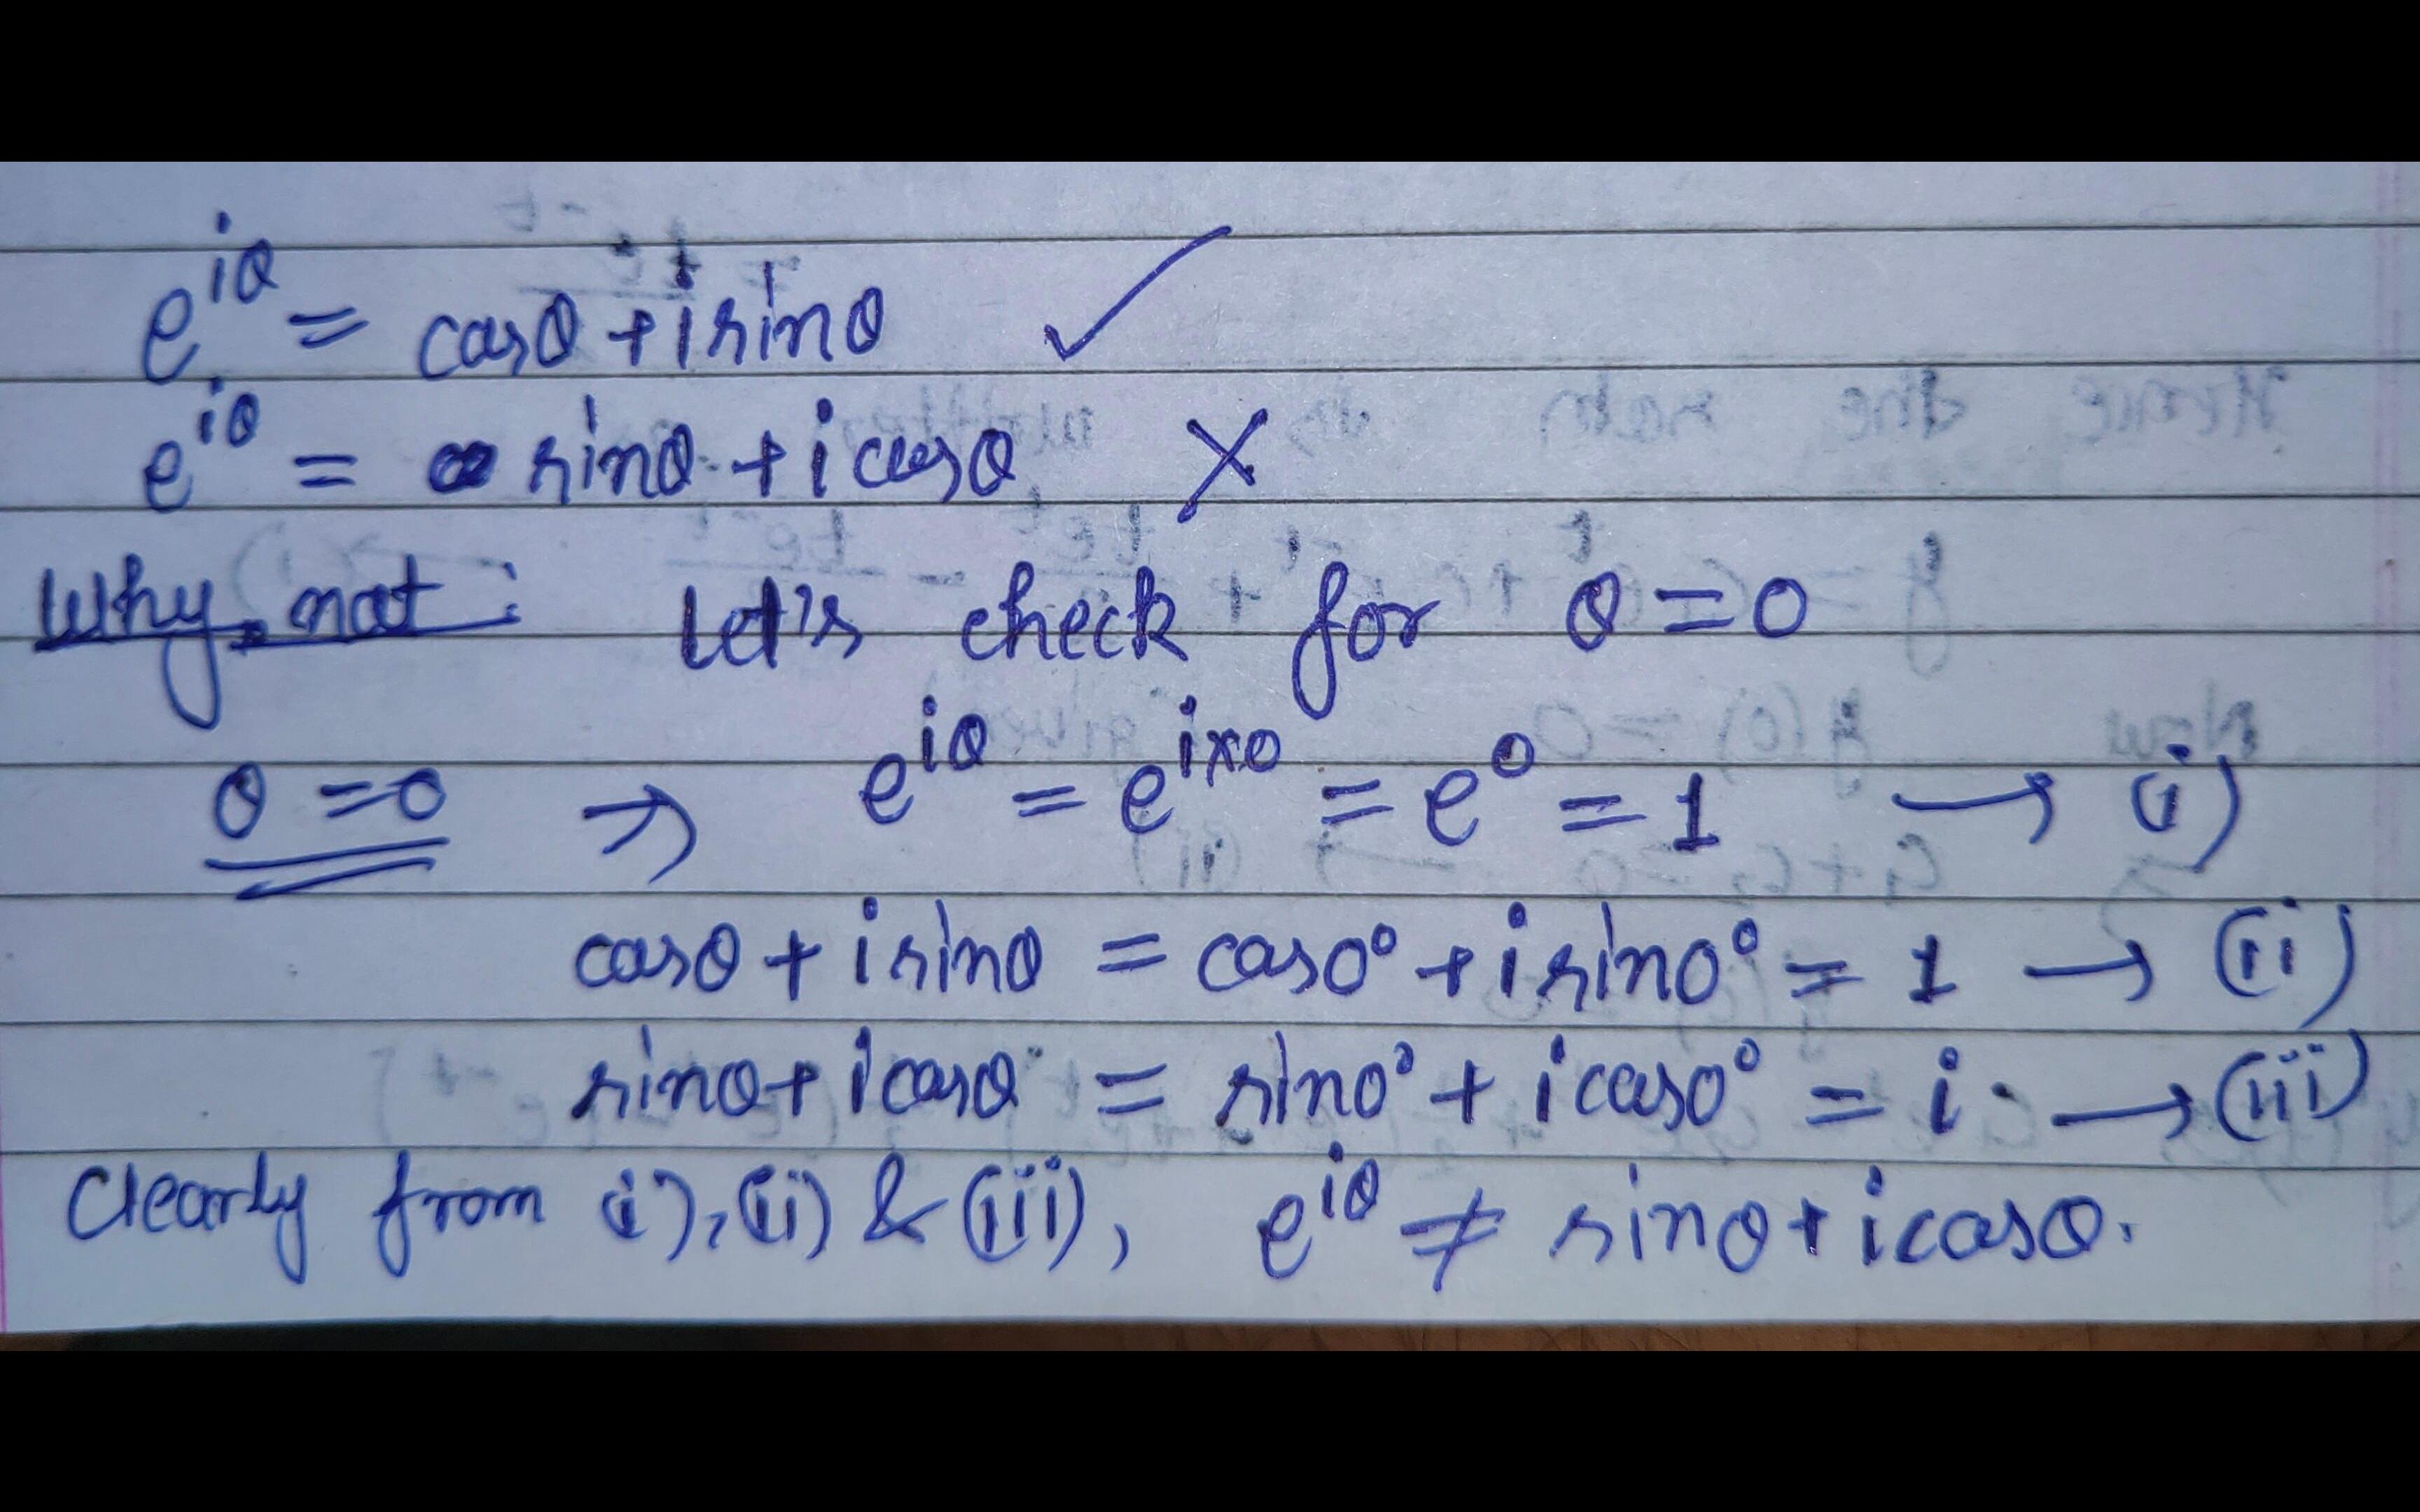 e^{iθ} = cosθ + i sinθ ✓
e^{iθ} = sinθ + i cosθ ✗
Why not : Let's check for θ = 0
θ = 0 ⇒ e^{iθ} = e^{i×0} = e^0 = 1 → (i)
cosθ + i sinθ = cos0° + i sin0° = 1 → (ii)
sinθ + i cosθ = sin0° + i cos0° = i → (iii)
Clearly from (i), (ii) & (iii), e^{iθ} ≠ sinθ + i cosθ.